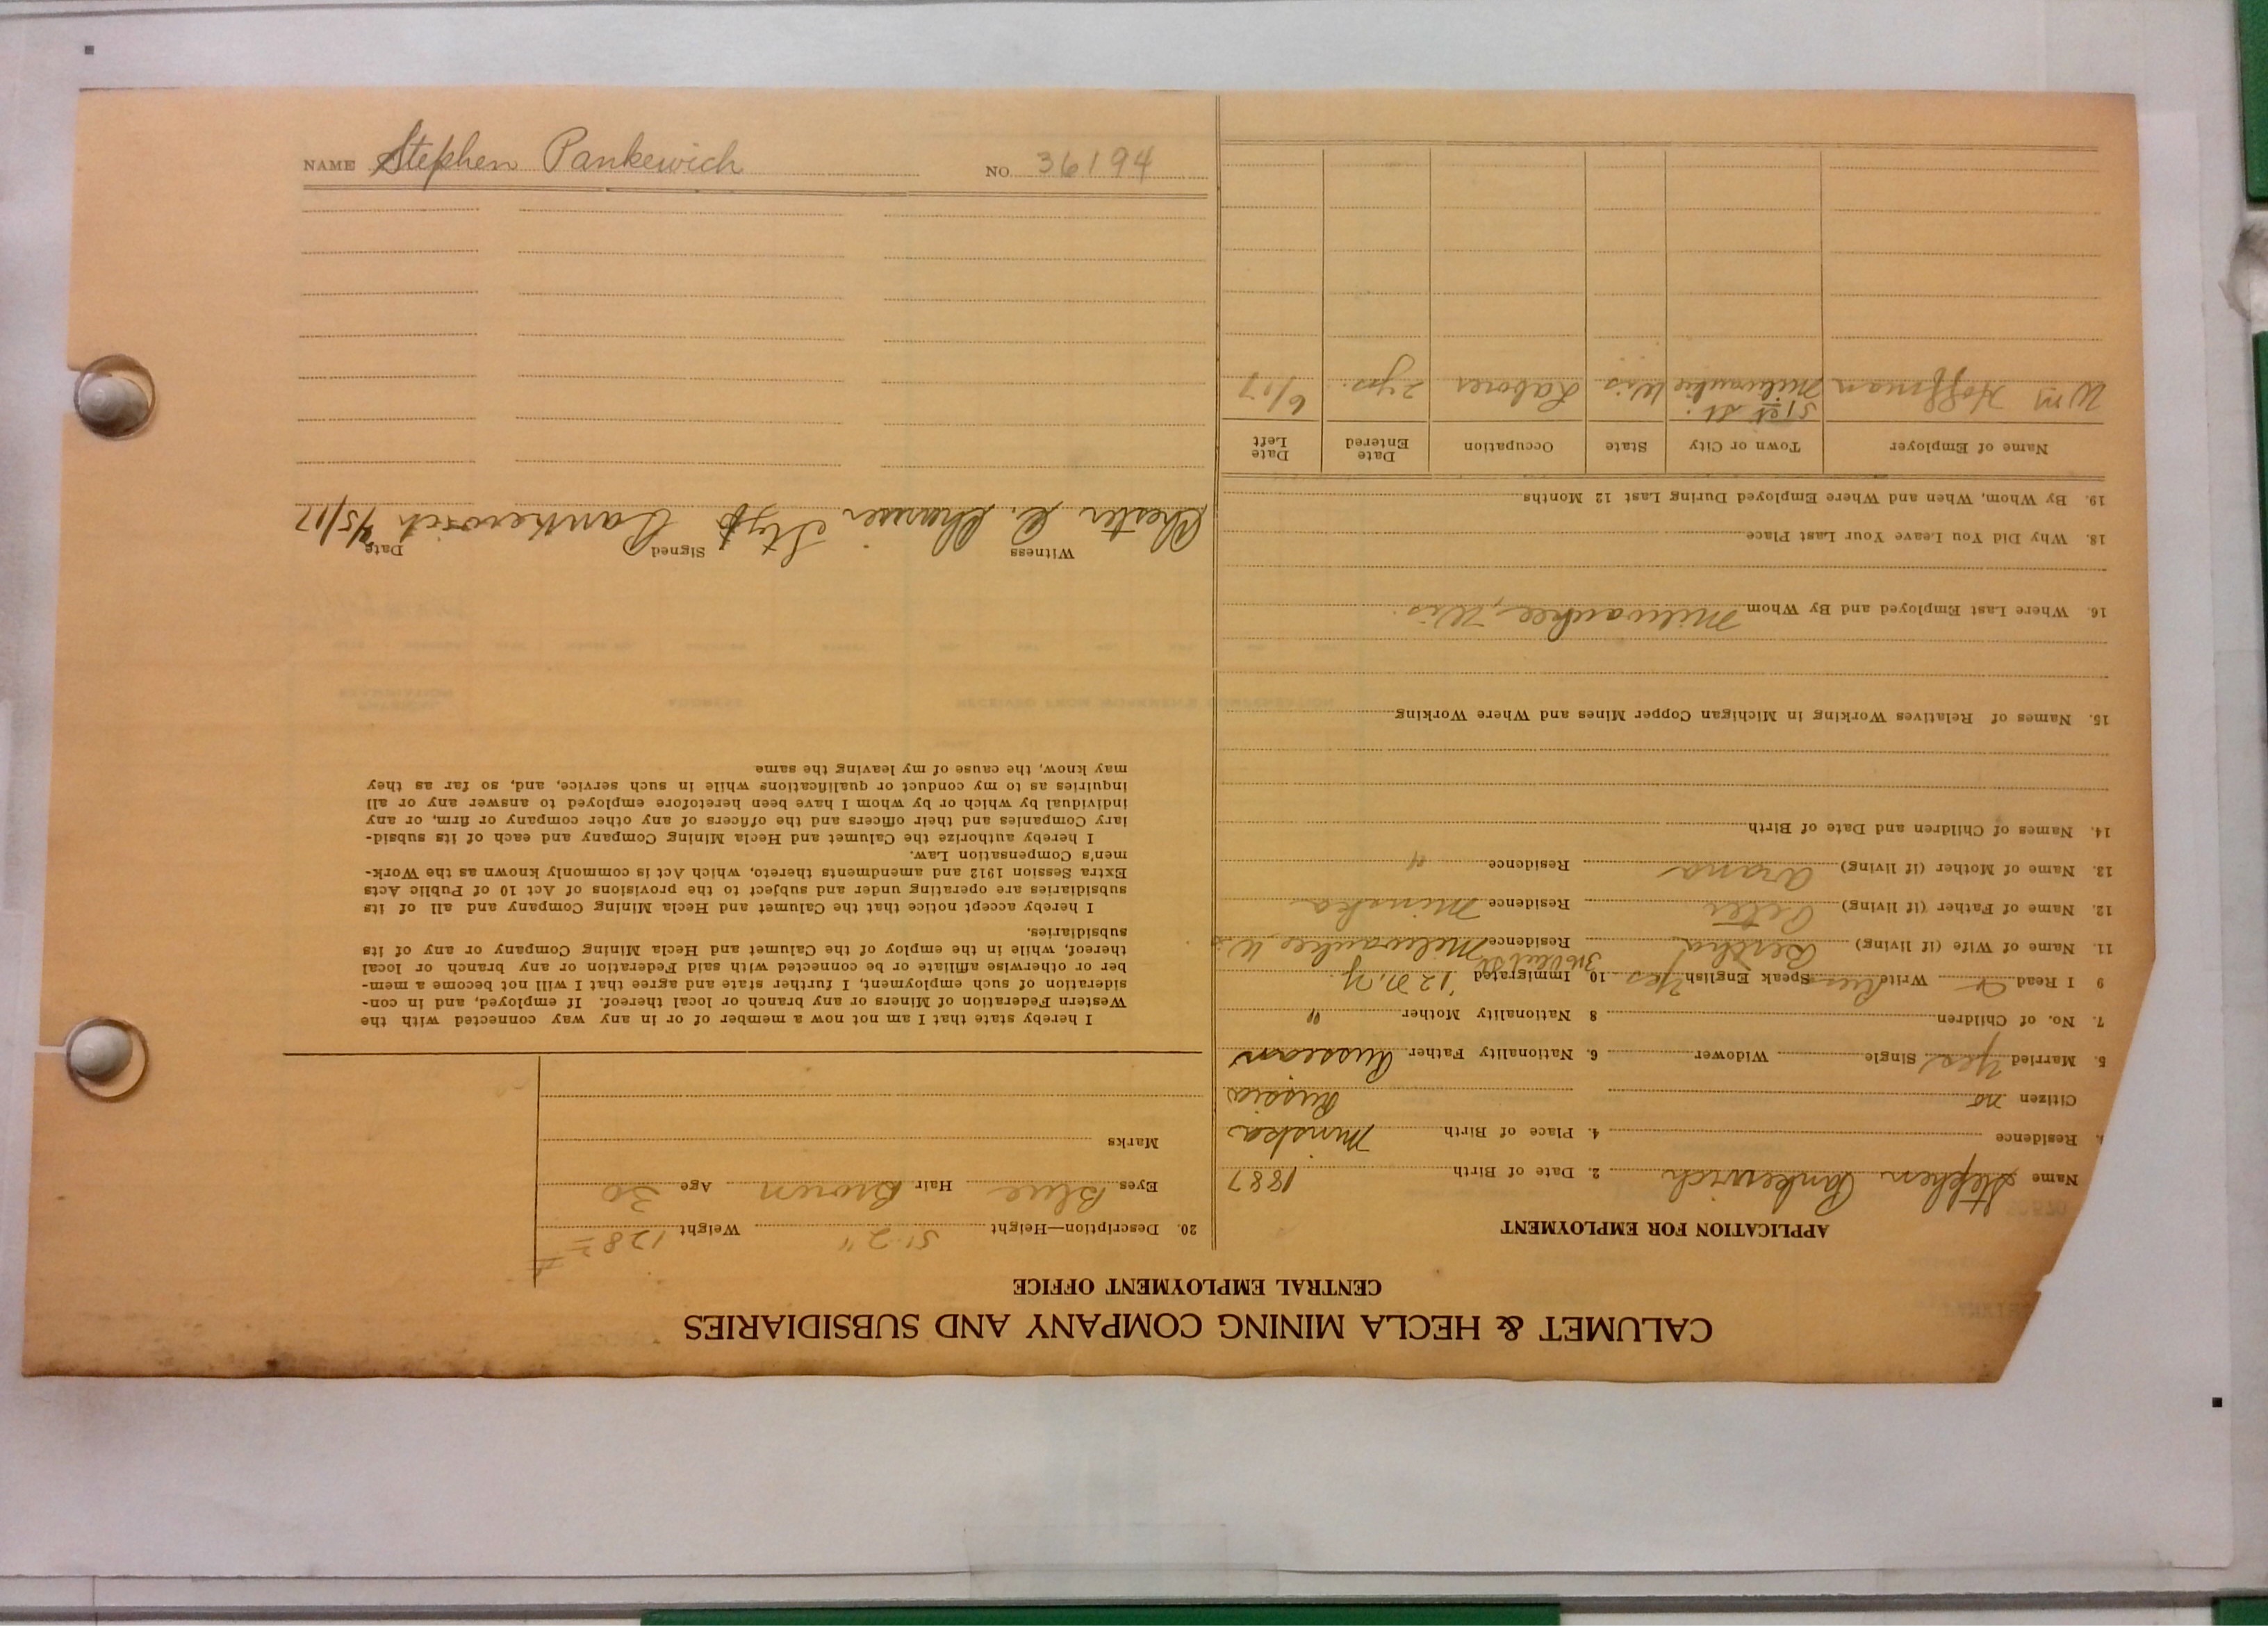 CALUMET & HECLA MINING COMPANY AND SUBSIDIARIES
CENTRAL EMPLOYMENT OFFICE
APPLICATION FOR EMPLOYMENT
Name Stephen Pankewich 2. Date of Birth 1887
Residence 4. Place of Birth Minska
Citizen no Russia
5. Married Yes Single Widower 6. Nationality Father Russian
7. No. of Children 8 Nationality Mother "
9 I Read Write Russ Speak English Yes 10 Immigrated '12 N.Y.
11. Name of Wife (if living) Bertha Residence Milwaukee, Wis
12. Name of Father (if living) Peter Residence Minska
13. Name of Mother (if living) Residence "
14. Names of Children and Date of Birth
15. Names of Relatives Working in Michigan Copper Mines and Where Working
16. Where Last Employed and By Whom Milwaukee, Wis.
18. Why Did You Leave Your Last Place
19. By Whom, When and Where Employed During Last 12 Months
Name of Employer Town or City State Occupation Date Entered Date Left
51st St.
Wm Hoffman Milwaukee Wis Laborer 2 yrs. 6/17
20. Description—Height 5'.2" Weight 128
Eyes Blue Hair Brown Age 30
Marks
I hereby state that I am not now a member of or in any way connected with the
Western Federation of Miners or any branch or local thereof. If employed, and in con-
sideration of such employment, I further state and agree that I will not become a mem-
ber or otherwise affiliate or be connected with said Federation or any branch or local
thereof, while in the employ of the Calumet and Hecla Mining Company or any of its
subsidiaries.
I hereby accept notice that the Calumet and Hecla Mining Company and all of its
subsidiaries are operating under and subject to the provisions of Act 10 of Public Acts
Extra Session 1912 and amendments thereto, which Act is commonly known as the Work-
men's Compensation Law.
I hereby authorize the Calumet and Hecla Mining Company and each of its subsid-
iary Companies and their officers and the officers of any other company or firm, or any
individual by which or by whom I have been heretofore employed to answer any or all
inquiries as to my conduct or qualifications while in such service, and, so far as they
may know, the cause of my leaving the same
Witness Signed Date
Chester C. Pankewich /5/17
NAME Stephen Pankewich NO. 36194